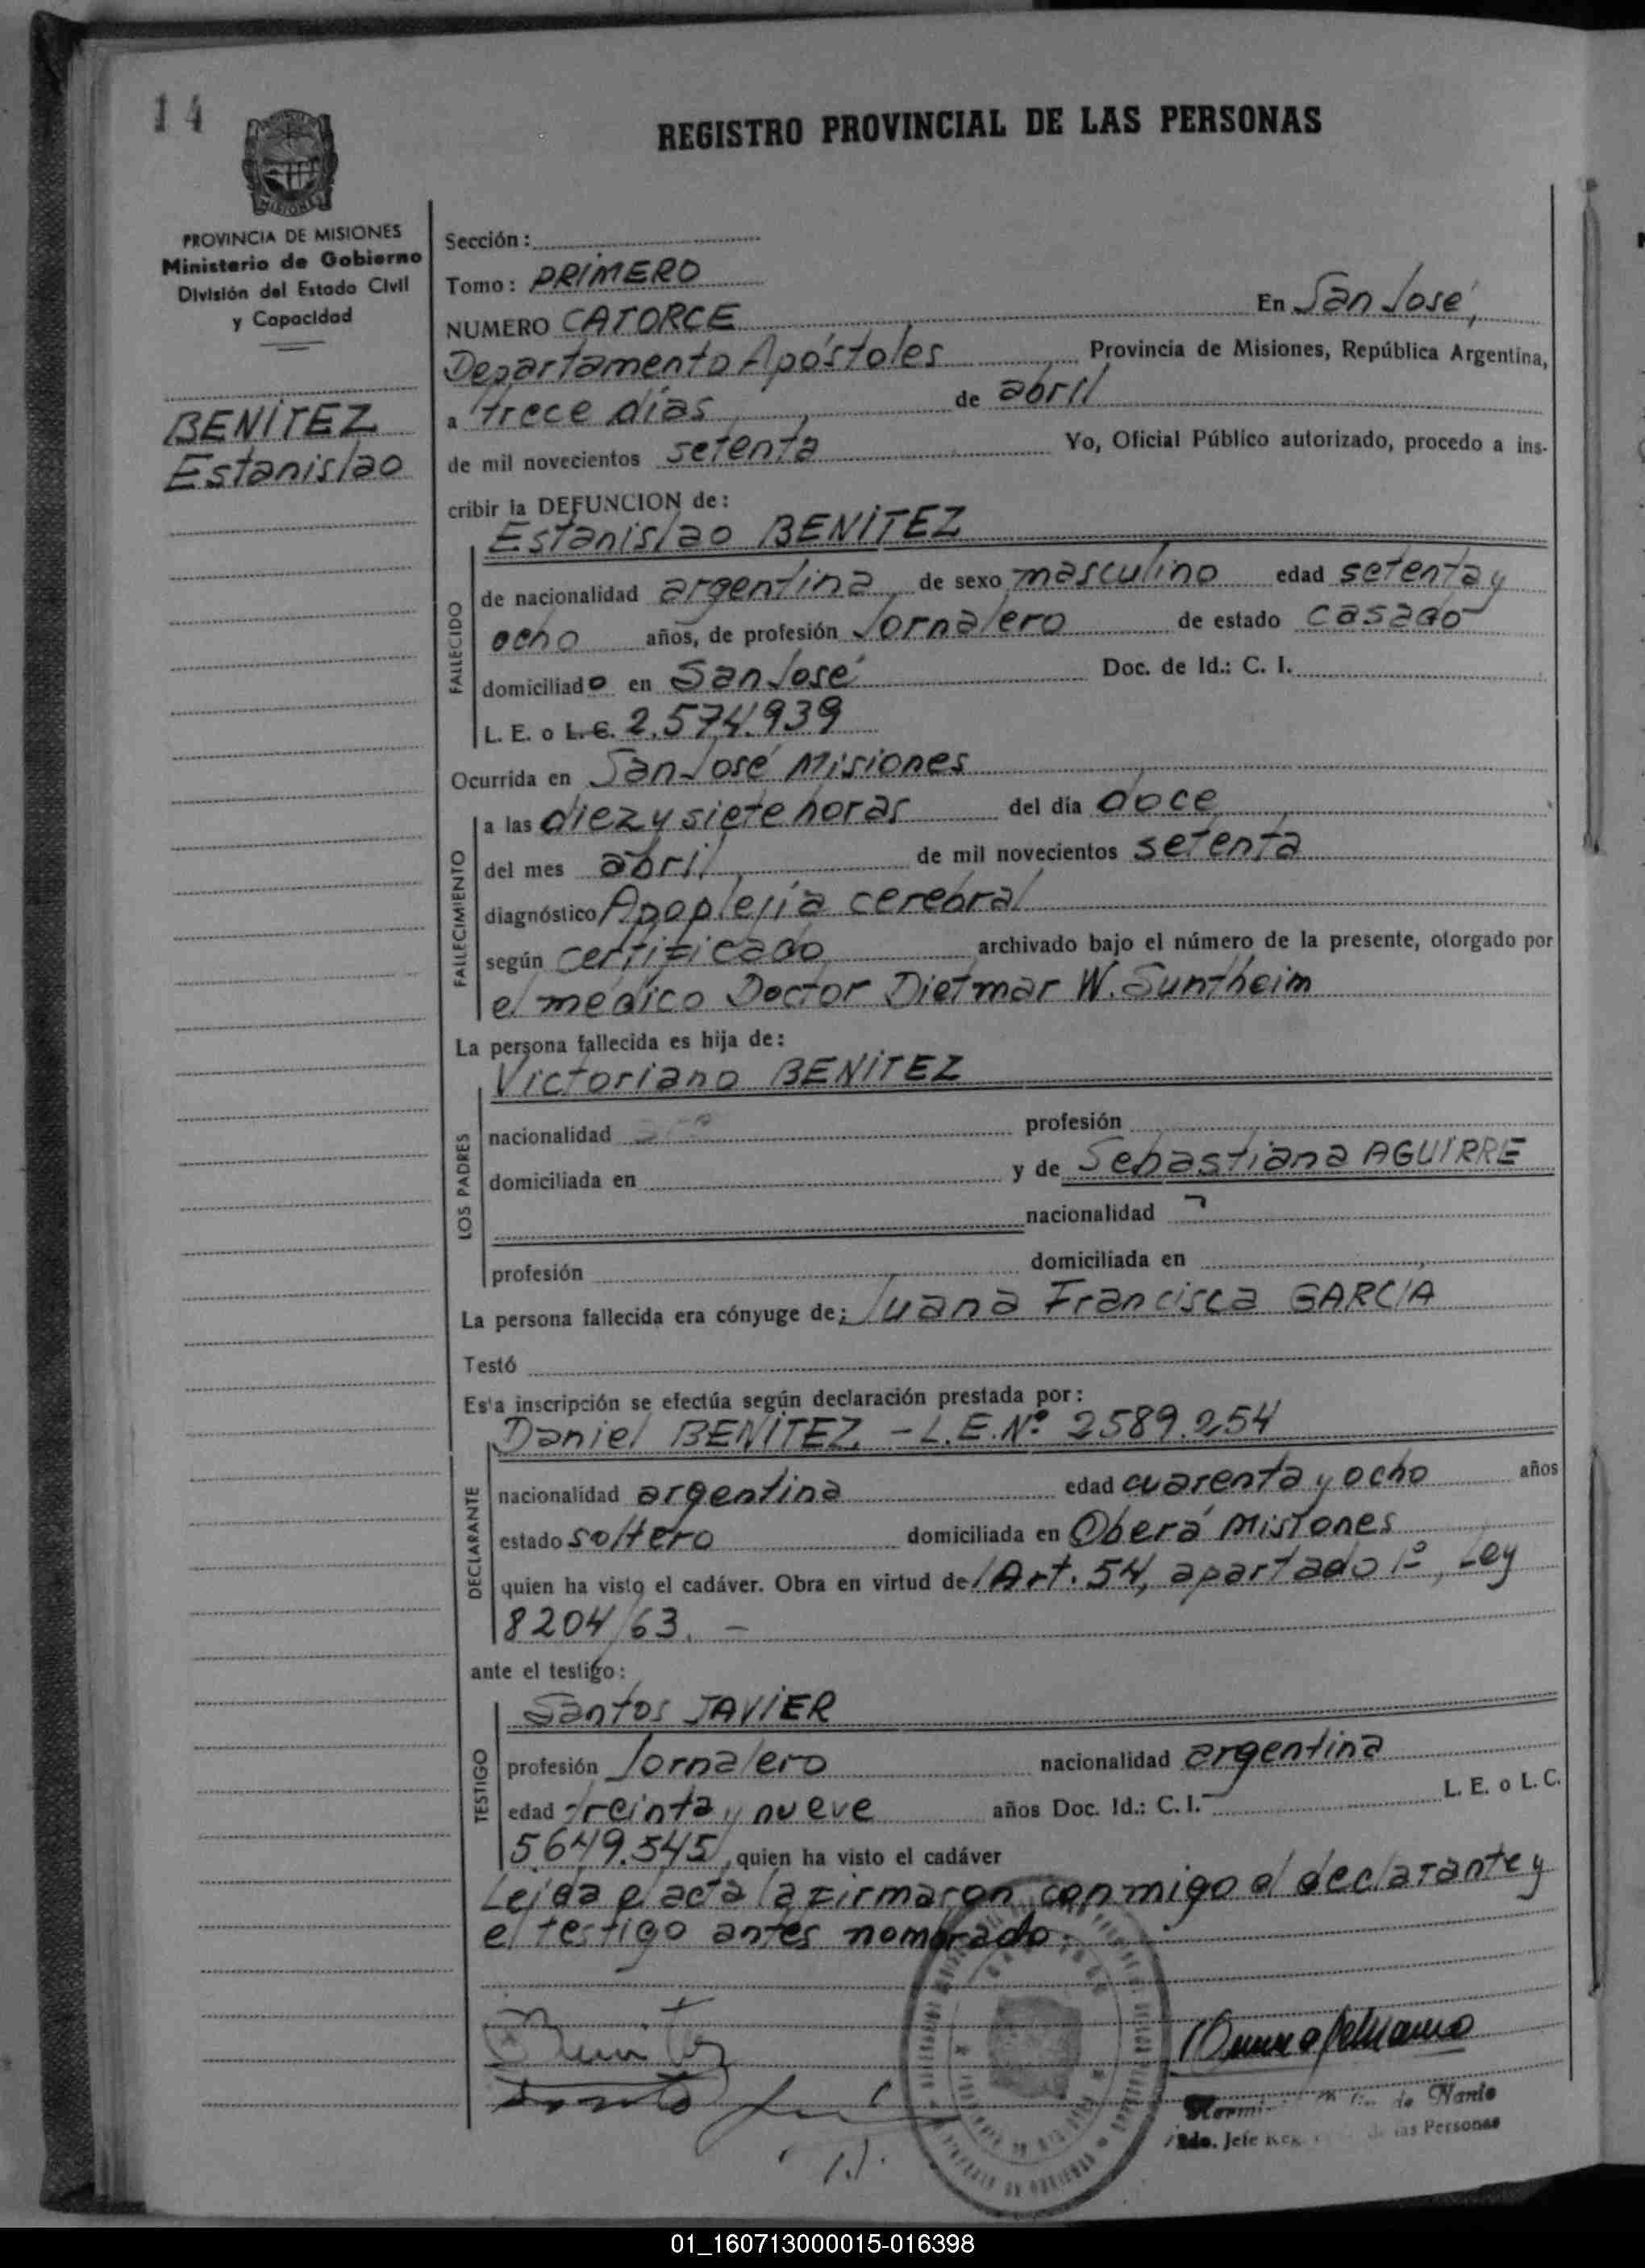 14
REGISTRO PROVINCIAL DE LAS PERSONAS
MISIONES
PROVINCIA DE MISIONES
Ministerio de Gobierno
División del Estado Civil
y Capacidad
BENÍTEZ
Estanislao
Sección:
Tomo: PRIMERO
NUMERO CATORCE En San José,
Departamento Apóstoles Provincia de Misiones, República Argentina,
a trece días de abril
de mil novecientos setenta Yo, Oficial Público autorizado, procedo a ins-
cribir la DEFUNCION de:
Estanislao BENÍTEZ
FALLECIDO
de nacionalidad argentina de sexo masculino edad setenta y
ocho años, de profesión Jornalero de estado casado
domiciliado en San José Doc. de Id.: C. I.
L. E. o L. C. 2.574.939
Ocurrida en San José Misiones
FALLECIMIENTO
a las diez y siete horas del día doce
del mes abril de mil novecientos setenta
diagnóstico Apoplejía cerebral
según certificado archivado bajo el número de la presente, otorgado por
el médico Doctor Dietmar W. Suntheim
La persona fallecida es hija de:
LOS PADRES
Victoriano BENÍTEZ
nacionalidad profesión
domiciliada en y de Sebastiana AGUIRRE
nacionalidad
profesión domiciliada en
La persona fallecida era cónyuge de: Juana Francisca GARCIA
Testó
Esta inscripción se efectúa según declaración prestada por:
DECLARANTE
Daniel BENÍTEZ - L.E.Nº 2589.254
nacionalidad argentina edad cuarenta y ocho años
estado soltero domiciliada en Oberá Misiones
quien ha visto el cadáver. Obra en virtud del Art. 54, apartado 1º, Ley
8204/63. -
ante el testigo:
TESTIGO
Santos JAVIER
profesión Jornalero nacionalidad argentina
edad treinta y nueve años Doc. Id.: C. I. L. E. o L. C.
5649.545, quien ha visto el cadáver
Leída el acta la firmaron conmigo el declarante y
el testigo antes nombrado.
de Nanio
Jefe Reg. de las Personas
01_160713000015-016398